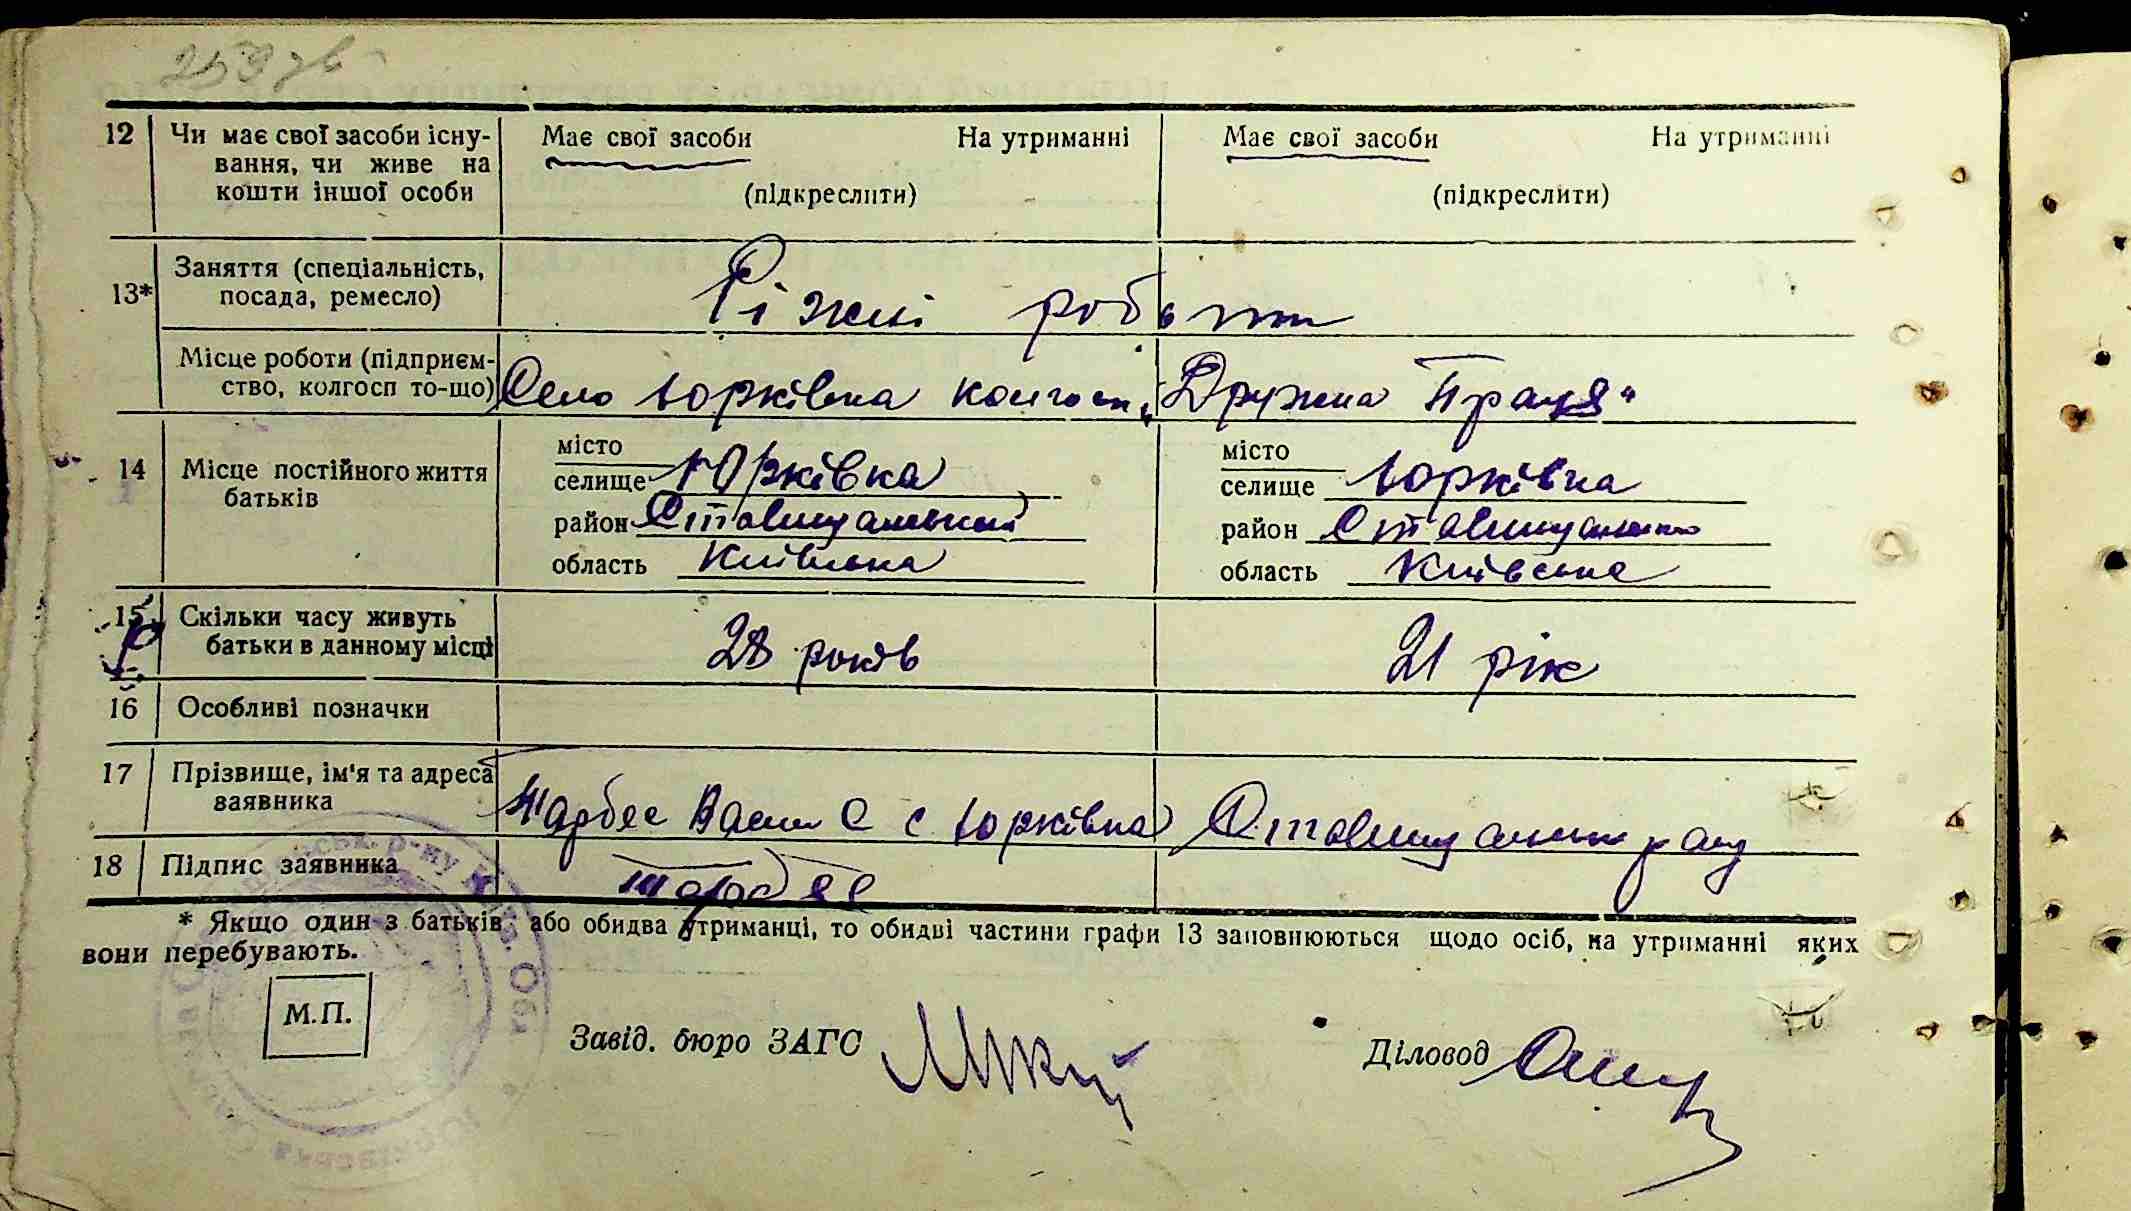 259 зв
12 Чи має свої засоби існу- Має свої засоби На утриманні Має свої засоби На утриманні
вання, чи живе на
кошти іншої особи (підкреслити) (підкреслити)
13* Заняття (спеціальність,
посада, ремесло) Ріжні роботи
Місце роботи (підприєм-
ство, колгосп то-що) Село Юрківка колгосп „Дружна Праця"
14 Місце постійного життя
батьків
місто місто
селище Юрківка селище Юрківка
район Ставищанський район Ставищансько
область Київська область Київська
15 Скільки часу живуть
батьки в данному місці 28 років 21 рік
16 Особливі позначки
17 Прізвище, ім'я та адреса
заявника с Юрківка Ставищанськ р ну
18 Підпис заявника
* Якщо один з батьків або обидва утриманці, то обидві частини графи 13 заповнюються щодо осіб, на утриманні яких
вони перебувають.
М.П.
Завід. бюро ЗАГС Діловод
р-ну Київ. Обл